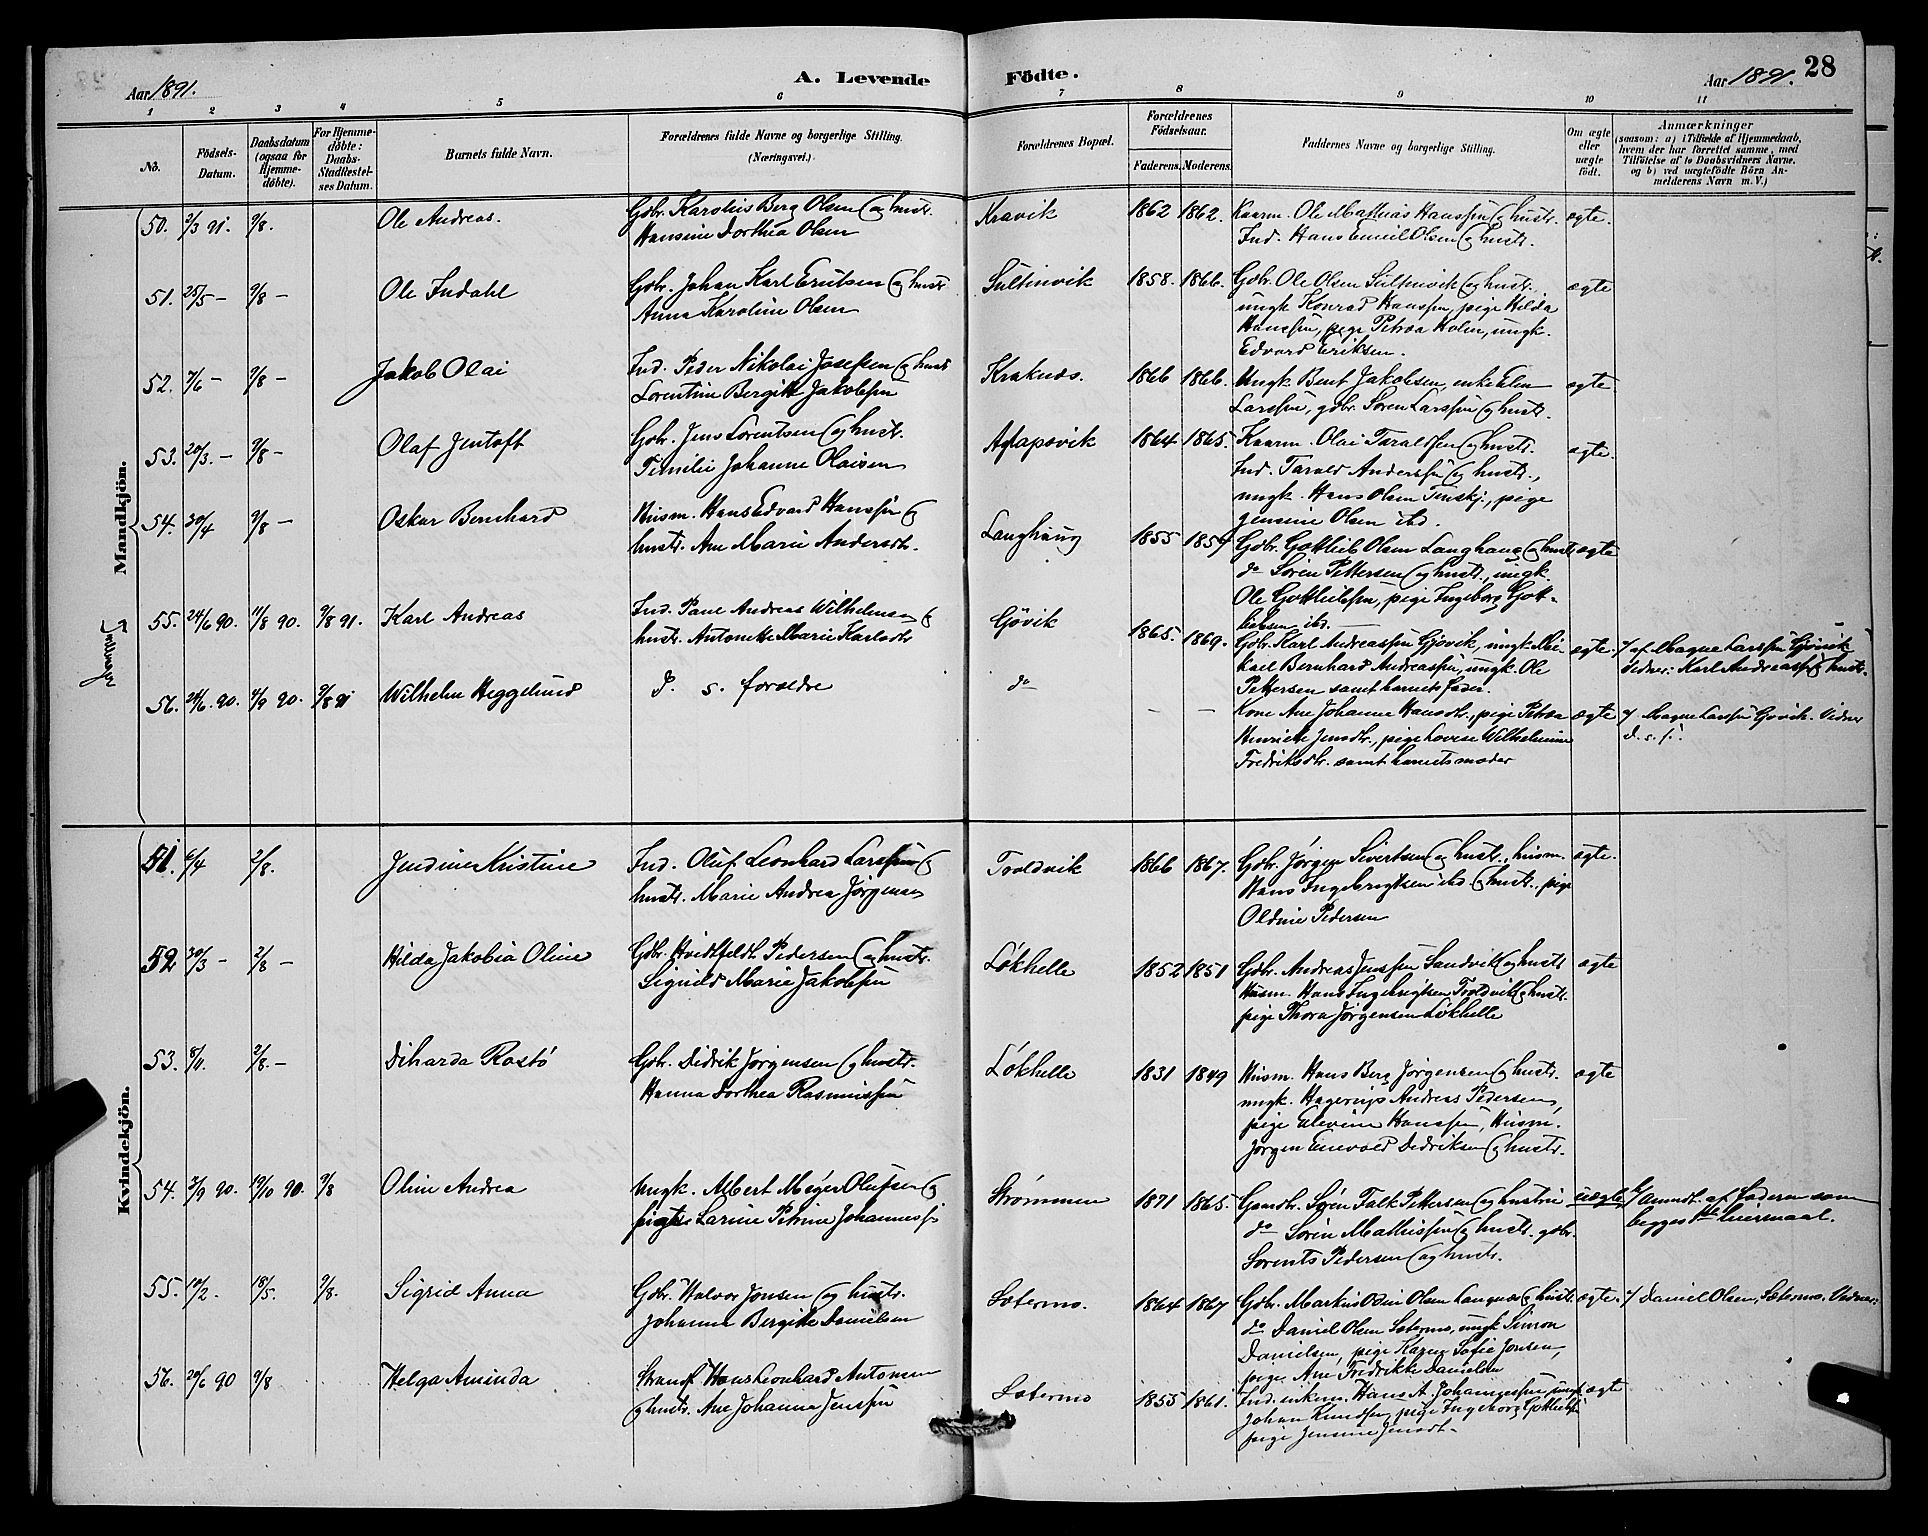 28
Aar 1891. A. Levende Födte. Aar 1891.
1 2 3 4 5 6 7 8 9 10 11
No. Födsels-Datum. Daabsdatum (ogsaa for Hjemmedöbte). For Hjemmedöbte: Daabs-Stadfæstelses Datum. Barnets fulde Navn. Forældrenes fulde Navne og borgerlige Stilling. (Næringsvei.) Forældrenes Bopæl. Forældrenes Födselsaar. Faderens. Moderens. Faddernes Navne og borgerlige Stilling. Om ægte eller uægte födt. Anmærkninger (saasom: a) i Tilfælde af Hjemmedaab, hvem der har forrettet samme, med Tilföielse af to Daabsvidners Navne, og b) ved uægtefödte Börn Anmelderens Navn m. V.)
Mandkjön.
50. 2/3 91. 9/8. Ole Andreas. Gdbr. Karolius Berg Olsen og hustr. Kravik 1862 1862. Kaarm. Ole Mathias Hanssen og hustr. ægte.
Hansine Dorthea Olsen Ind. Hans Emeil Olsen og hustr.
51. 25/5 - 9/8 - Ole Indahl Gdbr. Johan Karl Eriksen og hustr. Sultinvik 1858. 1866. Gdbr. Ole Olsen Sultinvik og hustr. ægte
Anna Karoline Olsen ungk. Konrad Hanssen, pige Hilda
Hanssen, pige Petrea Holm, ungk.
Edvard Eriksen.
52. 7/6 - 9/8 - Jakob Olai Ind. Peder Nikolai Josefsen og hustr. Kraknes. 1866 1866. Ungk. Bent Jakobsen, enke Elen ægte.
Lorentine Bergitte Jakobsen Larssen, gdbr. Søren Larssen og hustr.
53. 20/3. - 9/8 - Olaf Jentoft Gdbr. Jens Lorentsen og hustr. Aglapsvik 1864 1865. Kaarm. Olai Taraldsen og hustr. ægte.
Johanne Olaisen Ind. Tarald Anderssen og hustr.,
ungk. Hans Olsen Finskj., pige
Jensine Olsen ibd.
54. 30/4 9/8 - Oskar Bernhard Husm. Hans Edvard Hanssen og Langhaug 1855 1857 Gdbr. Gottlieb Olsen Langhaug og hustr. ægte
hustr. Ane Marie Andersdr. do Søren Pettersen og hustr., ungk.
Ole Gottliebsen, pige Ingeborg Gott-
liebsen ibd.
55. 24/6 90. 11/8 90. 9/8 91. Karl Andreas Ind. Paul Andreas Wilhelmsen og Gövik 1865. 1869. Gdbr. Karl Andreassen Gjövik, ungk. Mi- ægte. af Magne Larssen Gövik
hustr. Antonette Marie Karlsdr. kael Bernhard Andreassen, ungk. Ole Vidner: Karl Andreassen og hustr.
Pettersen samt barnets fader.
56. 24/6. 90. 4/9 90. 9/8 91 Wilhelm Heggelund D. s. forældre do - - Kone Ane Johanne Hansdr., pige Petrea ægte Magne Larssen Gövik. Vidner
Henriette Jensdr., pige Lovise Wilhelmine d. s.
Fredriksdr. samt barnets moder
Kvindekjön.
51. 6/4 2/8. Jendine Kristine Ind. Oluf Leonhard Larssen og Troldvik 1866 1867. Gdbr. Jørgen Sivertsen og hustr., husm. ægte.
hustr. Marie Andrea Jørgensen Hans Ingebrigtsen ibd. og hustr., pige
Oldine Pedersen
52 30/3 - 2/8 - Hilda Jakobia Oline Gdbr. Hvidtfeldt Pedersen og hustr. Løkhelle 1852 1851 Gdbr. Andreas Jenssen Sandvik og hustr. ægte
Sigrild Marie Jakobsen Husm. Hans Ingebrigtsen Troldvik og hustr.
pige Thora Jørgensen Løkhelle
53. 8/11. 2/8. - Diharda Rostö Gdbr. Didrik Jørgensen og hustr. Løkhelle 1831 1849 Husm. Hans Berg Jørgensen og hustr. ægte
Hanna Dorthea Rasmussen ungk. Hagerup Andreas Pedersen,
pige Elevine Hanssen, Husm.
Jørgen Enevold Dedriksen og hustr.
54. 3/9 90. 19/10 90. 9/8 Oline Andrea Ungk. Albert Meyer Olufsen og Strømmen 1871 1865. Gaardbr. Søren Falk Pettersen og hustru uægte Anmdt. af Faderen som
pige Larine Petrine Johanness. do Søren Mathissen og hustr. gdbr. begges 1ste leiermaal.
Lorents Pedersen og hustr.
55. 10/2. 18/5. 9/8. Sigrid Anna Gdbr. Halvor Jonsen og hustr. Sætermo. 1864 1867 Gdbr. Markus Odin Olsen Langnes og hustr. ægte. Daniel Olsen, Sætermo. Vidner:
Johanna Bergitte Danielsen do Daniel Olsen Sætermo, ungk Simon
Danielsen, pige Karen Sofie Jonsen,
pige Ane Fredrikke Danielsen
56. 20/6 90 9/8 Helga Aminda Hans Leonhard Antonsen Sætermo 1855 1861. Ind. enkem. Hans A. Johannessen, ungk ægte
og hustr. Ane Johanna Jenssen Johan Knudsen, pige Ingeborg Gottliebs.
pige Jensine Jensdr.